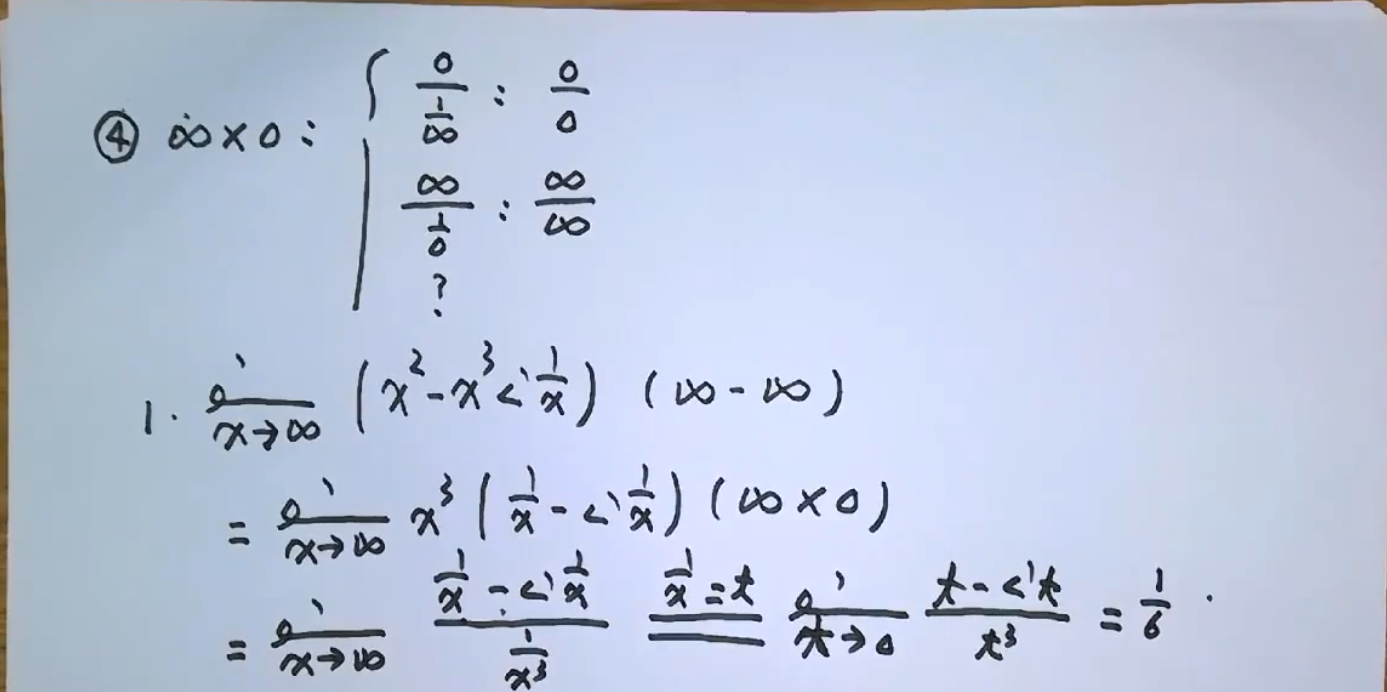 ④ ∞×0: { 0/(1/∞) : 0/0
∞/(1/0) : ∞/∞
?
1. lim x→∞ (x² - x³ sin 1/x) (∞-∞)
= lim x→∞ x³ (1/x - sin 1/x) (∞×0)
= lim x→∞ (1/x - sin 1/x)/(1/x³) 1/x=t lim t→0 (t - sin t)/t³ = 1/6.